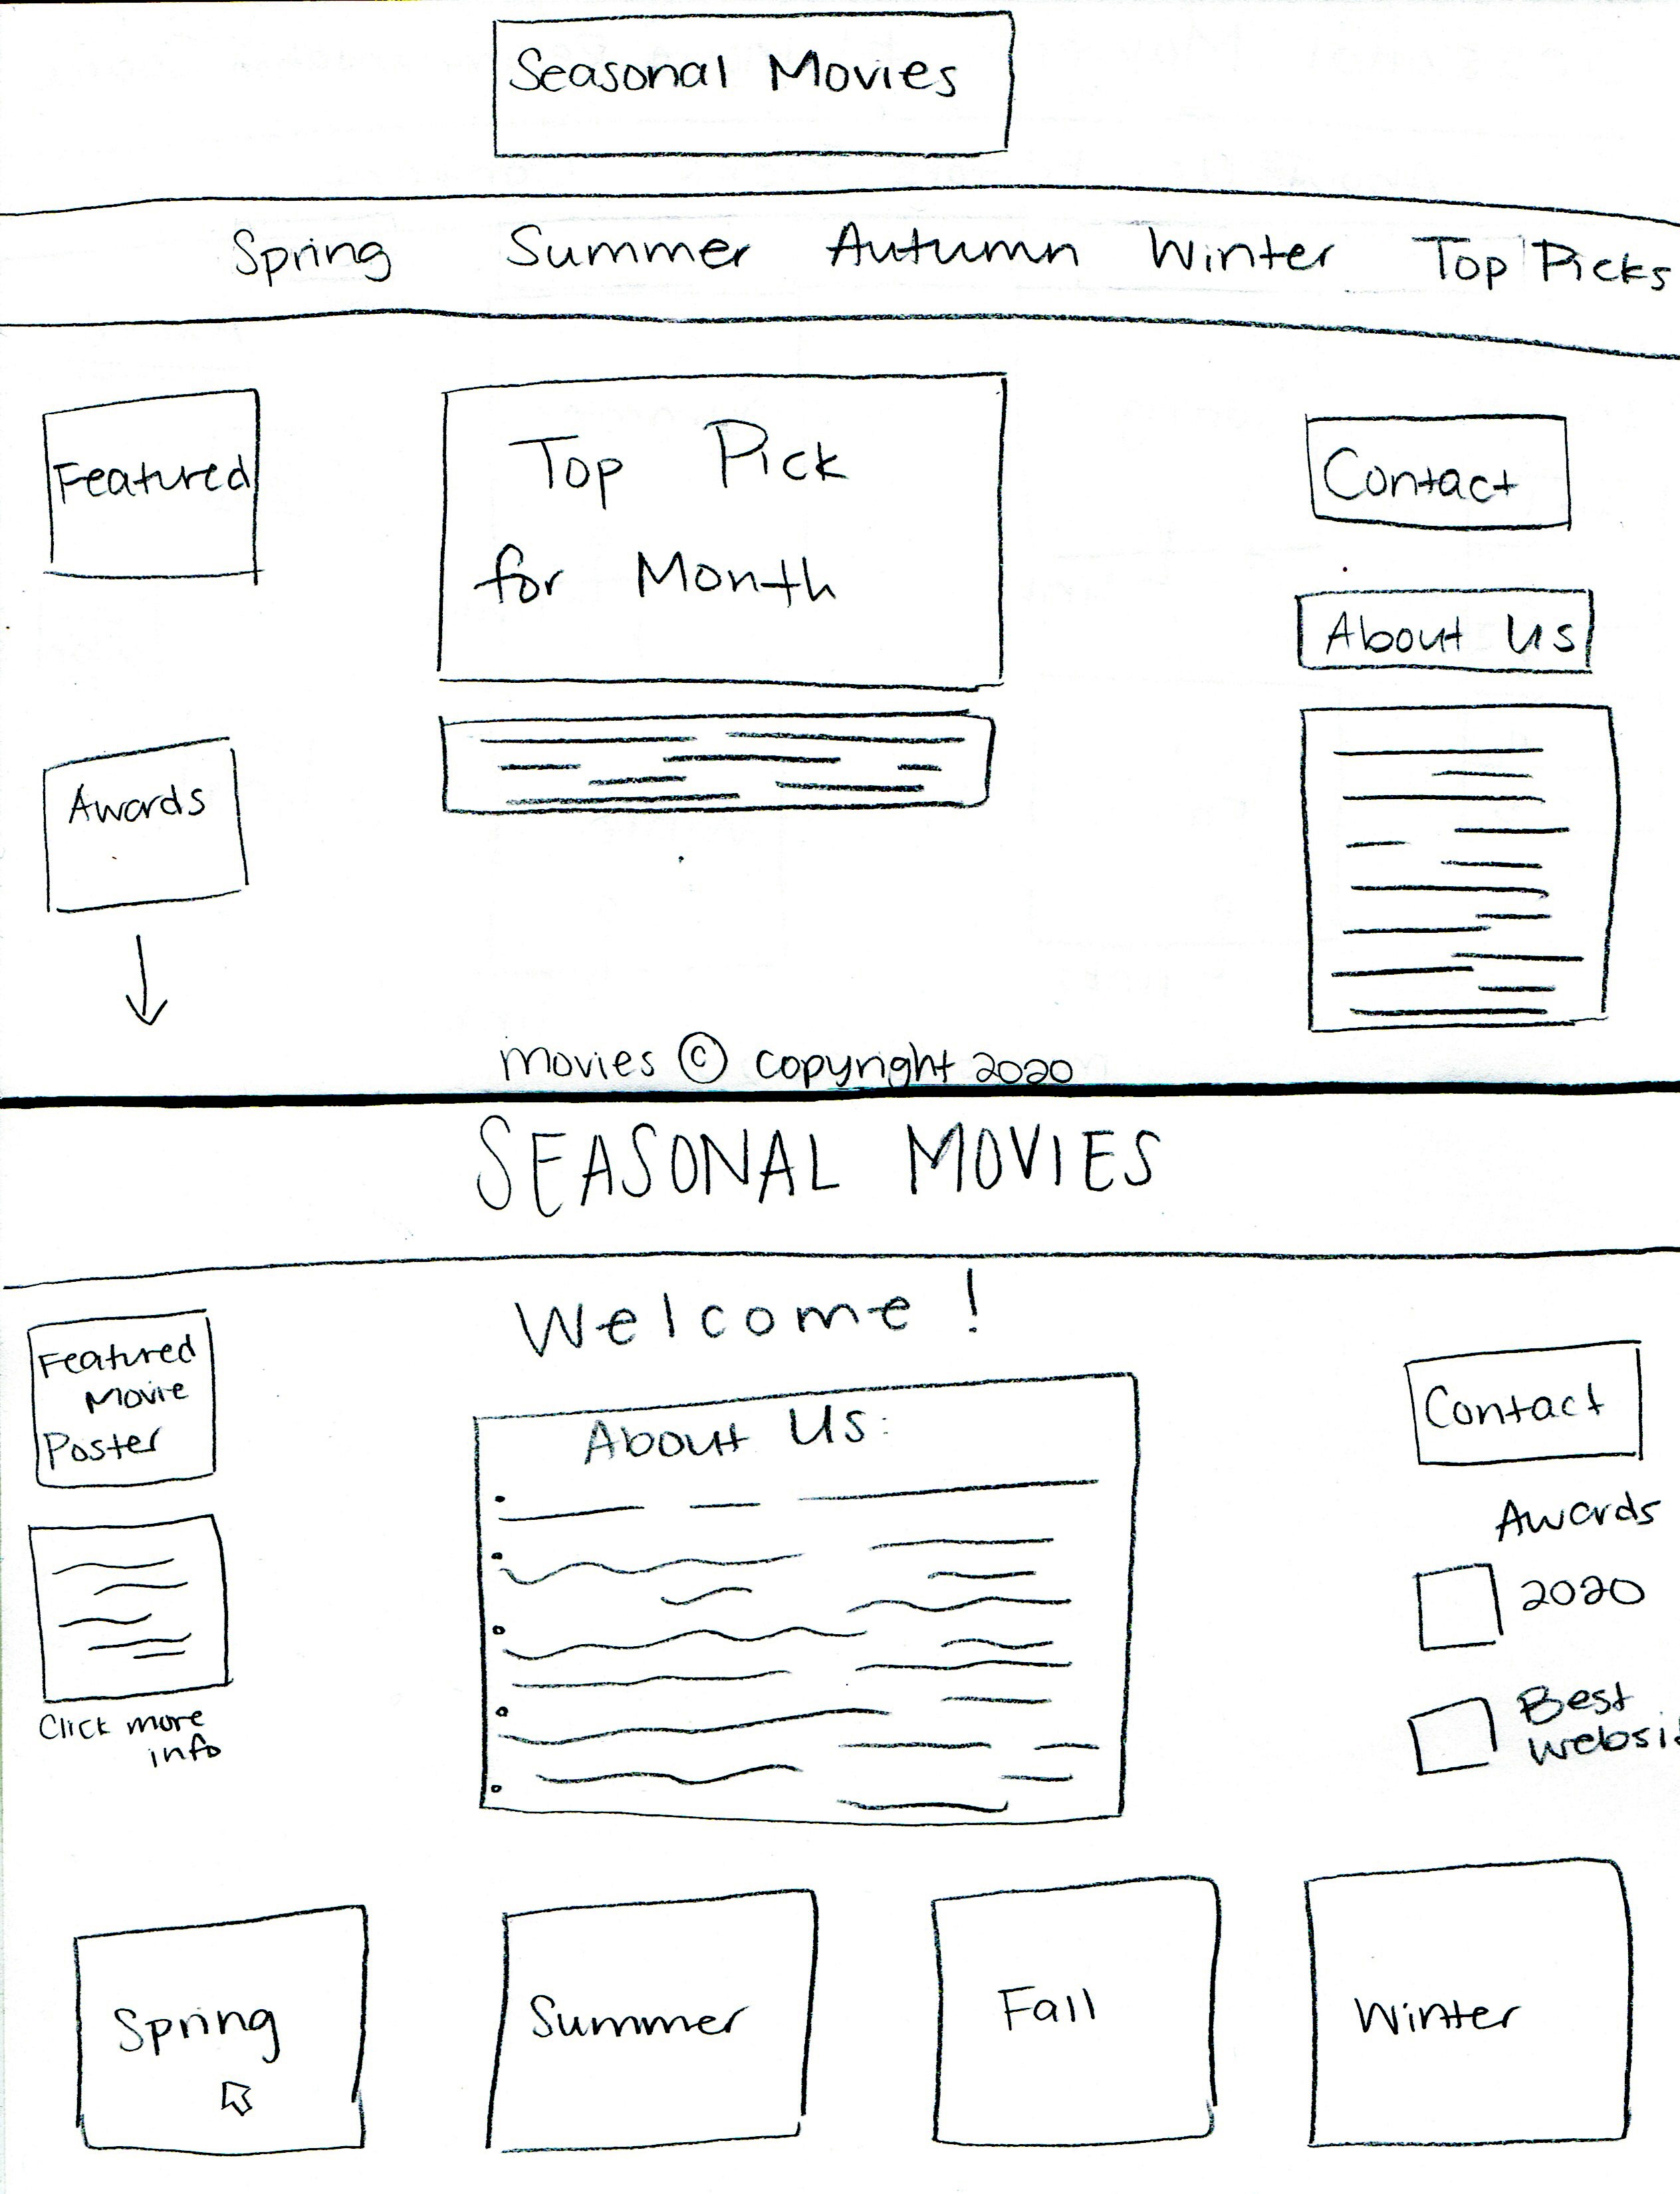 Seasonal Movies
Spring Summer Autumn Winter Top Picks
Featured
Top Pick
for Month
Contact
About Us
Awards
movies © copyright 2020
SEASONAL MOVIES
Welcome!
Featured
Movie
Poster
Click more
info
About Us:
Contact
Awards
2020
Best
websi
Spring
Summer
Fall
Winter